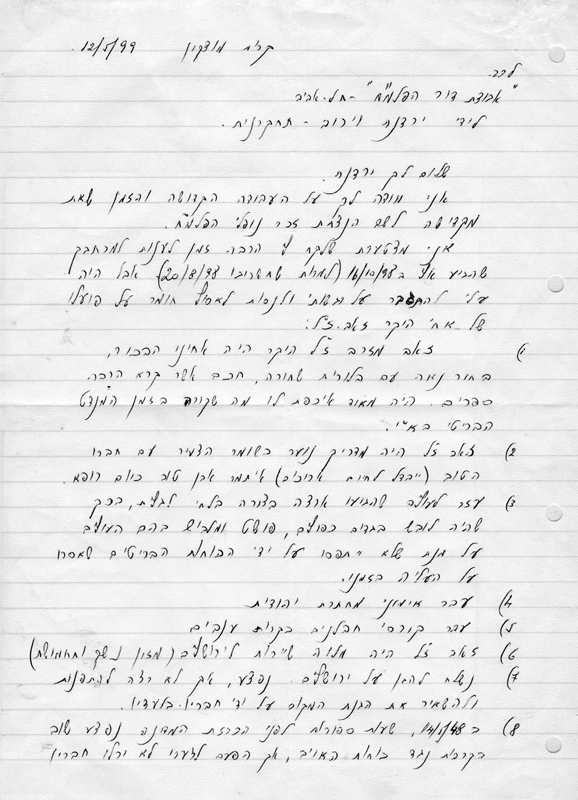 קרית מוצקין 12/5/99.
לכב.
"עמותת דור הפלמ"ח" - תל-אביב
לידי ירדנה וירוב - תחקרנית.
שלום לך ירדנה.
אני מודה לך על העבודה הקדושה והזמן שאת
מקדישה לשם הנצחת זכר נופלי הפלמ"ח.
אני מצטערת שלקח לי הרבה זמן לענות למכתבך
שהגיע אלי ב (למרות שתאריכו 20/8/98) אבל היה
עלי להתגבר על רגשותי ולנסות לאסוף חומר על פועלו
של אחי היקר זאב ז"ל:
1) זאב מזרב ז"ל היקר היה אחינו הבכור,
בחור נאה עם בלורית שחורה, חכם אשר קרא הרבה
ספרים. היה מאוד איכפת לו מה שקורה בזמן המנדט
הבריטי בא"י.
2) זאב ז"ל היה מדריך נוער בשומר הצעיר עם חברו
הטוב (ייבדל לחיים ארוכים) איתמר אבן טוב כיום רופא.
3) עזר לעולים שהגיעו ארצה בצורה בלתי לגלית, בכך
שהיה לובש בגדים כפולים, פושט ומלביש בהם העולים
על מנת שלא יתפסו על ידי הכוחות הבריטים שאסרו
על העליה בזמנו.
4) עבר אימוני מחתרת יהודית
5) עבר קורסי חבלנים בקרית ענבים
6) זאב ז"ל היה מלוה שיירות לירושלים (מזון נשק ותחמושת)
7) נשלח להגן על ירושלים. נפצע, אך לא רצה להתפנות
ולהשאיר את הגנת המקום על ידי חבריו בלעדיו.
8) ב 14/5/48, שעות ספורות לפני הכרזת המדינה נפצע שוב
בקרבות נגד כוחות האויב, אך הפעם לצערי לא יכלו חבריו